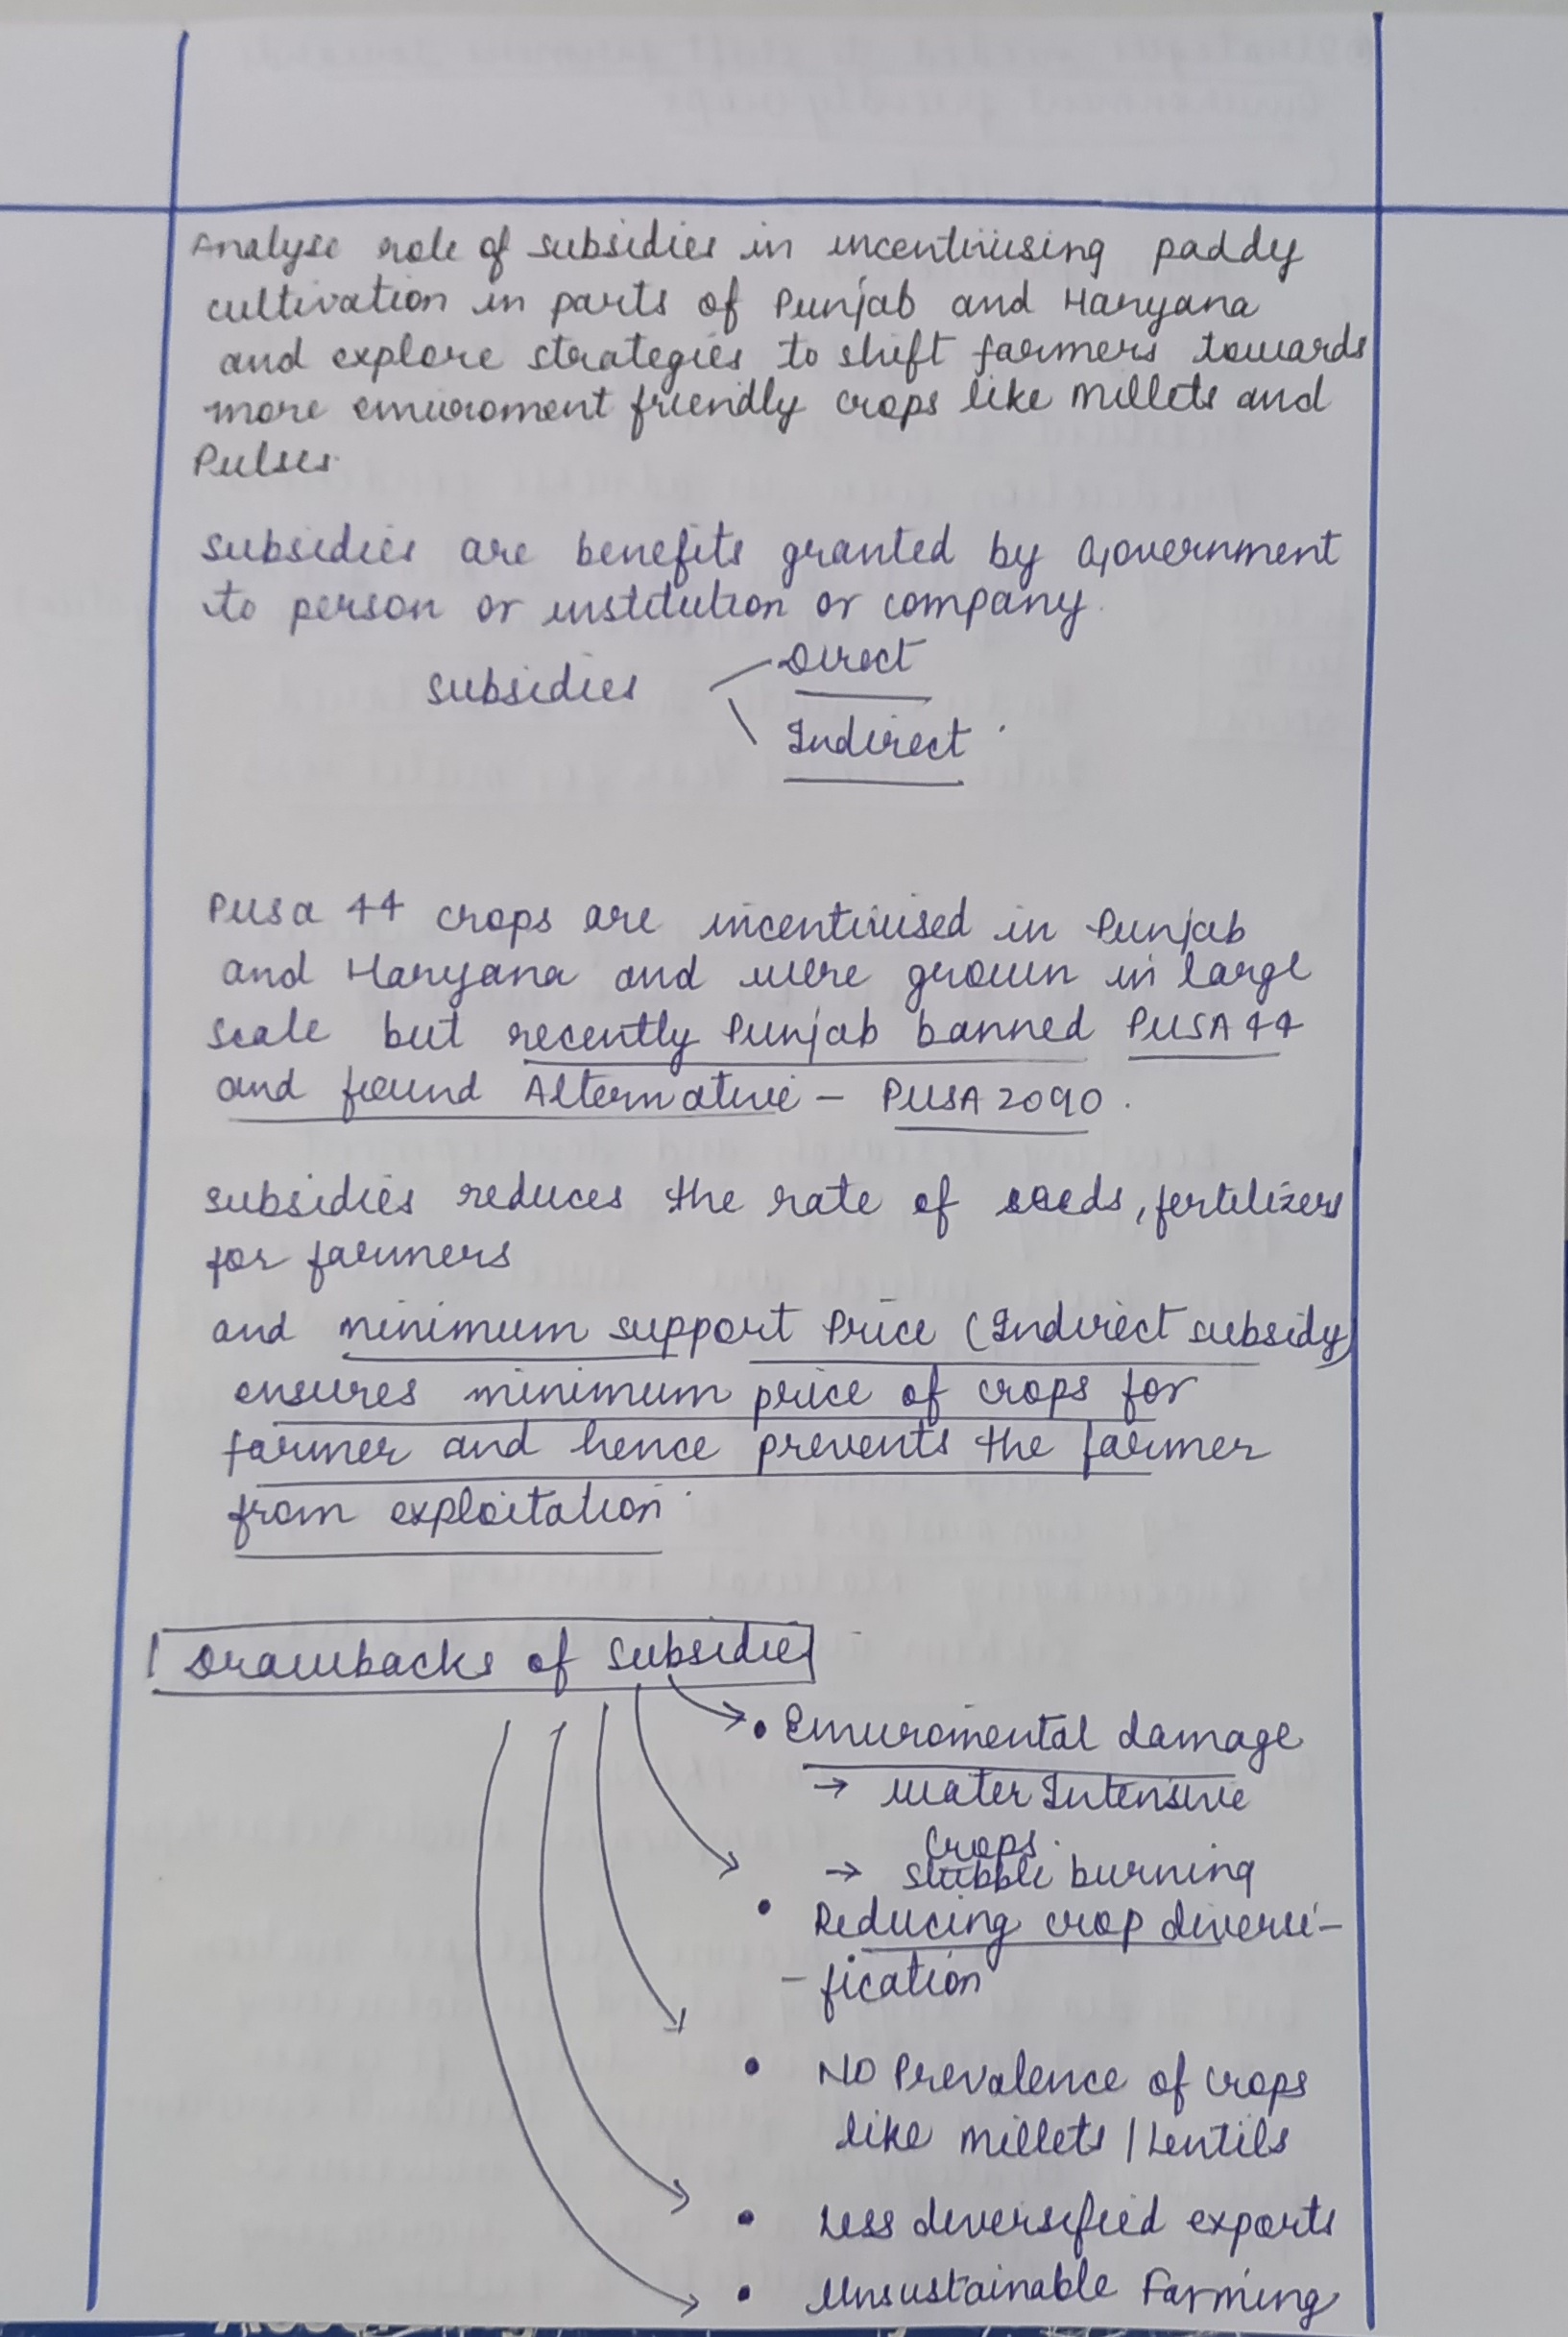 Analyse role of subsidies in incentivising paddy
cultivation in parts of Punjab and Haryana
and explore strategies to shift farmers towards
more enviroment friendly crops like Millets and
Pulses.
subsidies are benefits granted by Government
to person or institution or company.
subsidies
Direct
Indirect
PUSA 44 crops are incentivised in Punjab
and Haryana and were grown in large
scale but recently Punjab banned PUSA 44
and found Alternative - PUSA 2090.
subsidies reduces the rate of seeds, fertilizers
for farmers
and minimum support Price (Indirect subsidy)
ensures minimum price of crops for
farmer and hence prevents the farmer
from exploitation.
Drawbacks of Subsidies
• Enviromental damage
→ water Intensive
crops.
→ stubble burning
• Reducing crop diversi-
-fication
• No Prevalence of crops
like millets / Lentils
• Less diversified exports
• Unsustainable Farming